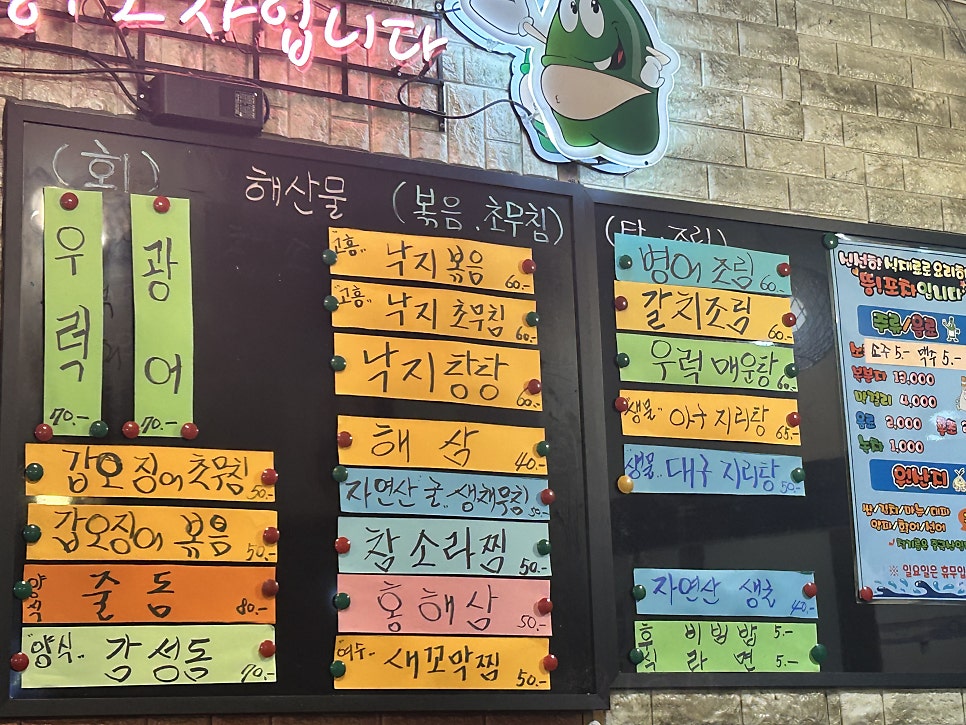 입니다
(회)
해산물 (볶음, 초무침)
우럭
70.-
광어
70.-
갑오징어초무침 50.-
갑오징어 볶음 50.-
양식 줄돔 80.-
"양식" 감성돔 70.-
"고흥" 낙지볶음 60.-
"고흥" 낙지 초무침 60.-
낙지탕탕 60.-
해삼 40.-
자연산 굴 생채무침 50.-
참소라찜 50.-
홍해삼 50.-
여수.. 새꼬막찜 50.-
(탕, 조림)
병어 조림 60.-
갈치조림 60.-
우럭 매운탕 60.-
"생물" 아구 지리탕 65.-
"생물" 대구 지리탕 50.-
자연산 생굴 40.-
후식 비빔밥 5.-
라면 5.-
신선한 식재료로 요리하
포차입니다
주류/음료
소주 5.- 맥주 5.-
13,000
막걸리 4,000
음료 2,000
1,000
원산지
쌀/김치/마늘/대파
※ 일요일은 휴무입